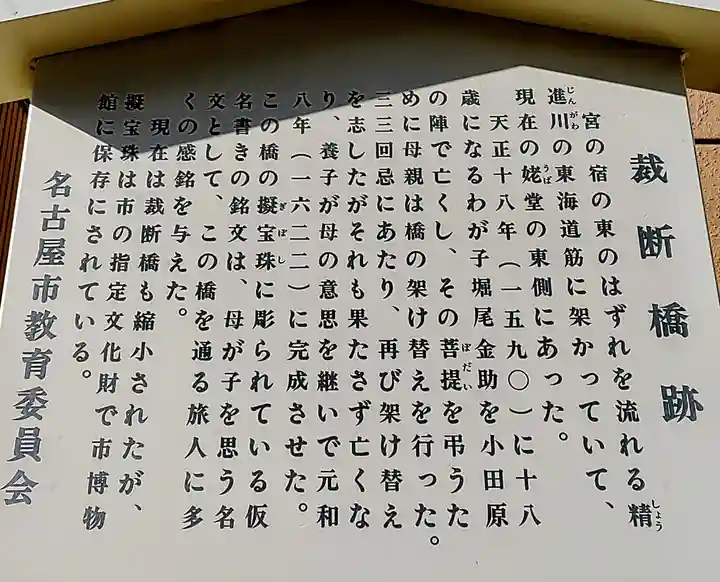 裁断橋跡
宮の宿の東のはずれを流れる精
進川の東海道筋に架かっていて、
現在の姥堂の東側にあった。
天正十八年(一五九〇)に十八
歳になるわが子堀尾金助を小田原
の陣で亡くし、その菩提を弔うた
めに母親は橋の架け替えを行った。
三三回忌にあたり、再び架け替え
を志したがそれも果たさず亡くな
り、養子が母の意思を継いで元和
八年(一六二二)に完成させた。
この橋の擬宝珠に彫られている仮
名書きの銘文は、母が子を思う名
文として、この橋を通る旅人に多
くの感銘を与えた。
現在は裁断橋も縮小されたが、
擬宝珠は市の指定文化財で市博物
館に保存にされている。
名古屋市教育委員会